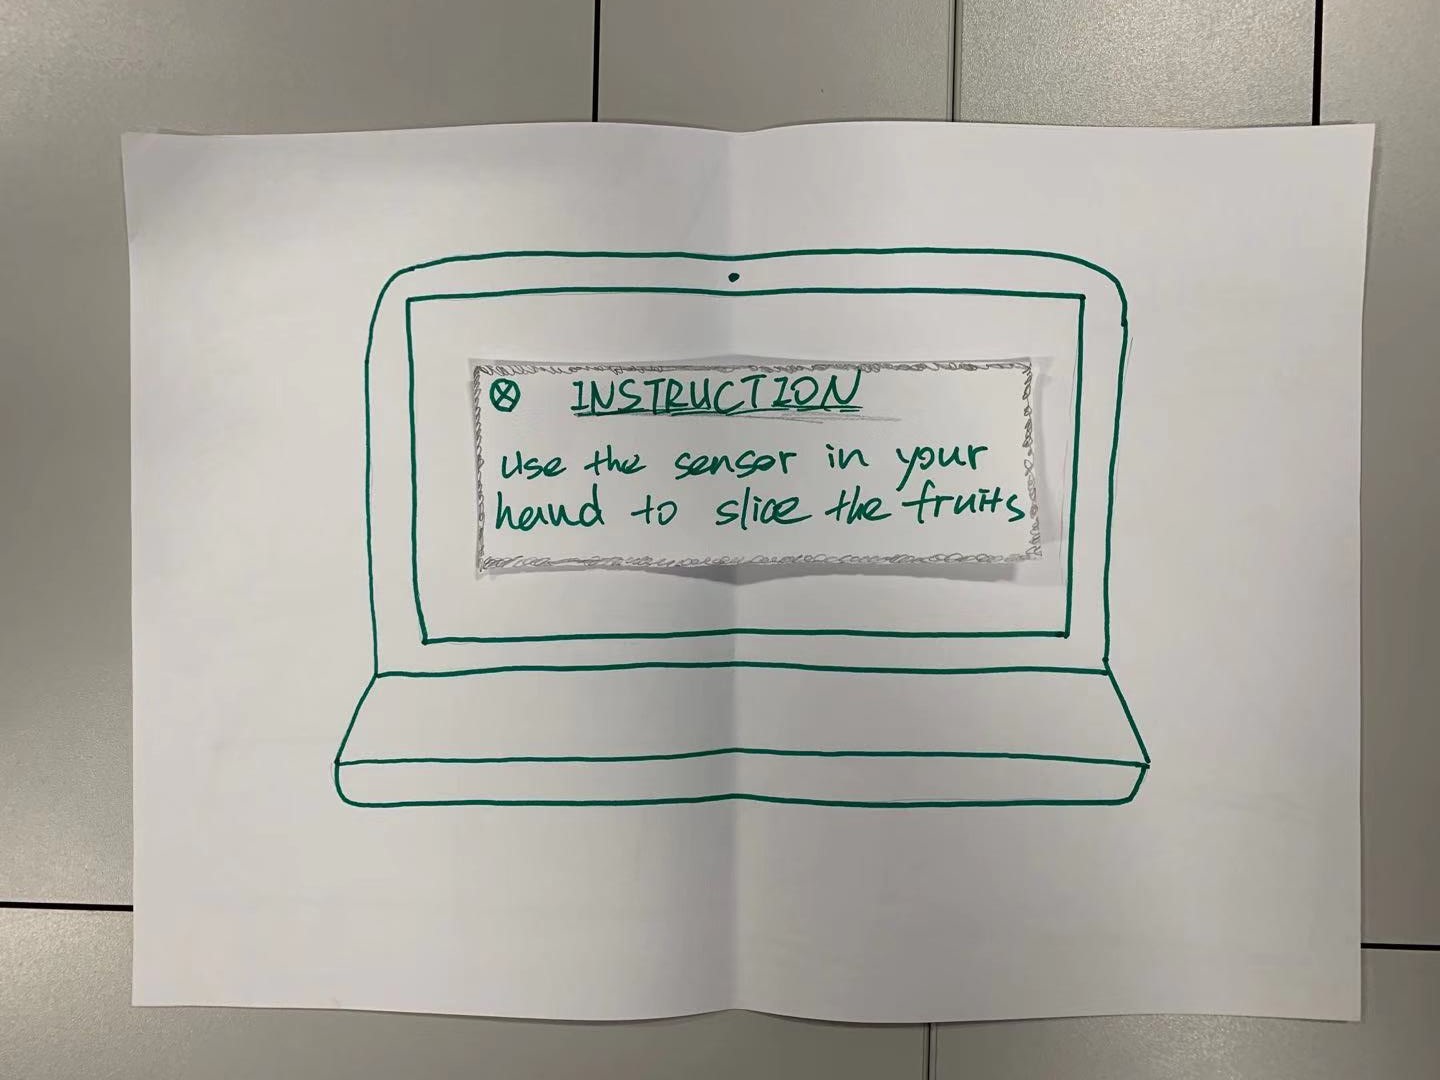 INSTRUCTION
use the sensor in your
hand to slice the fruits